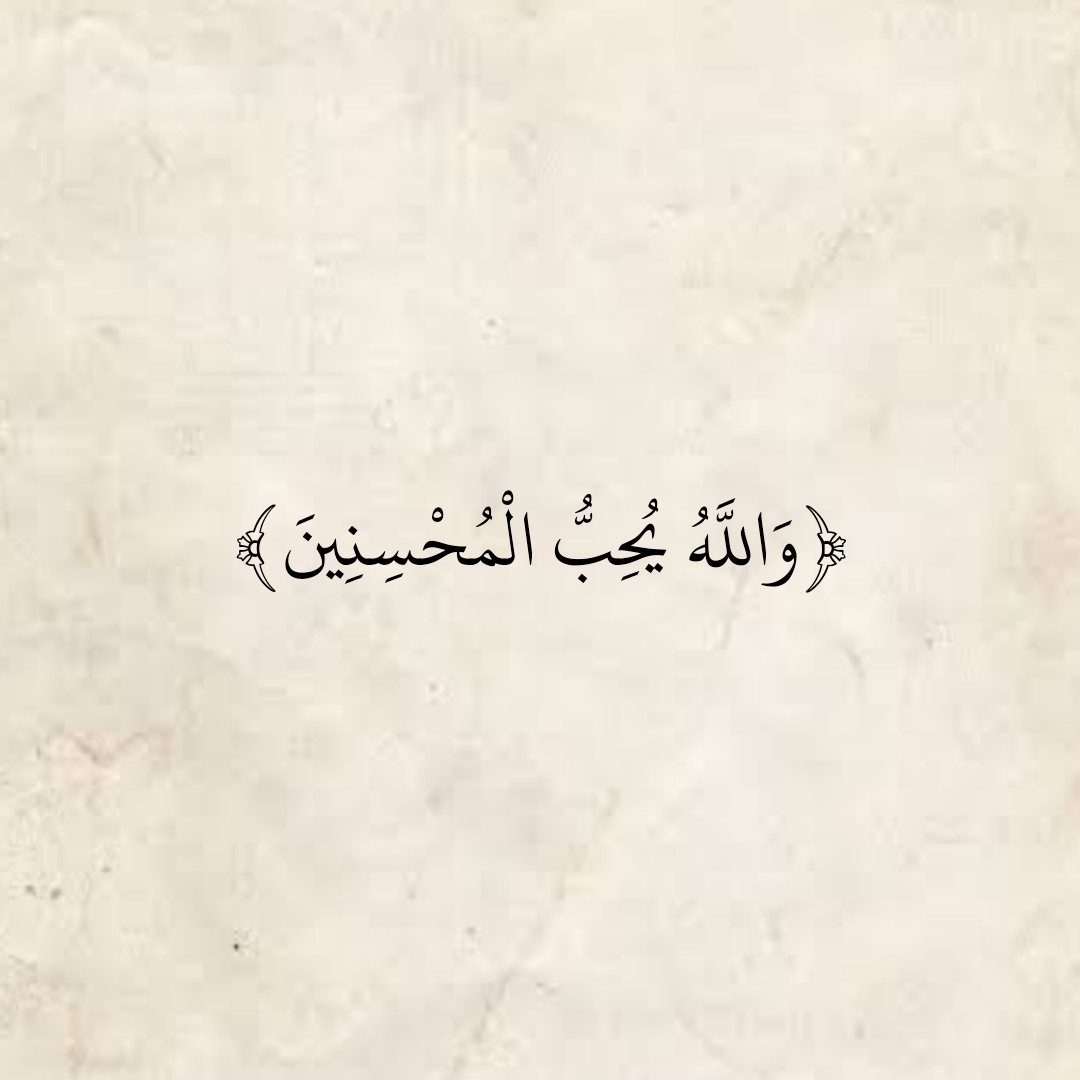 ﴿وَاللَّهُ يُحِبُّ الْمُحْسِنِينَ﴾